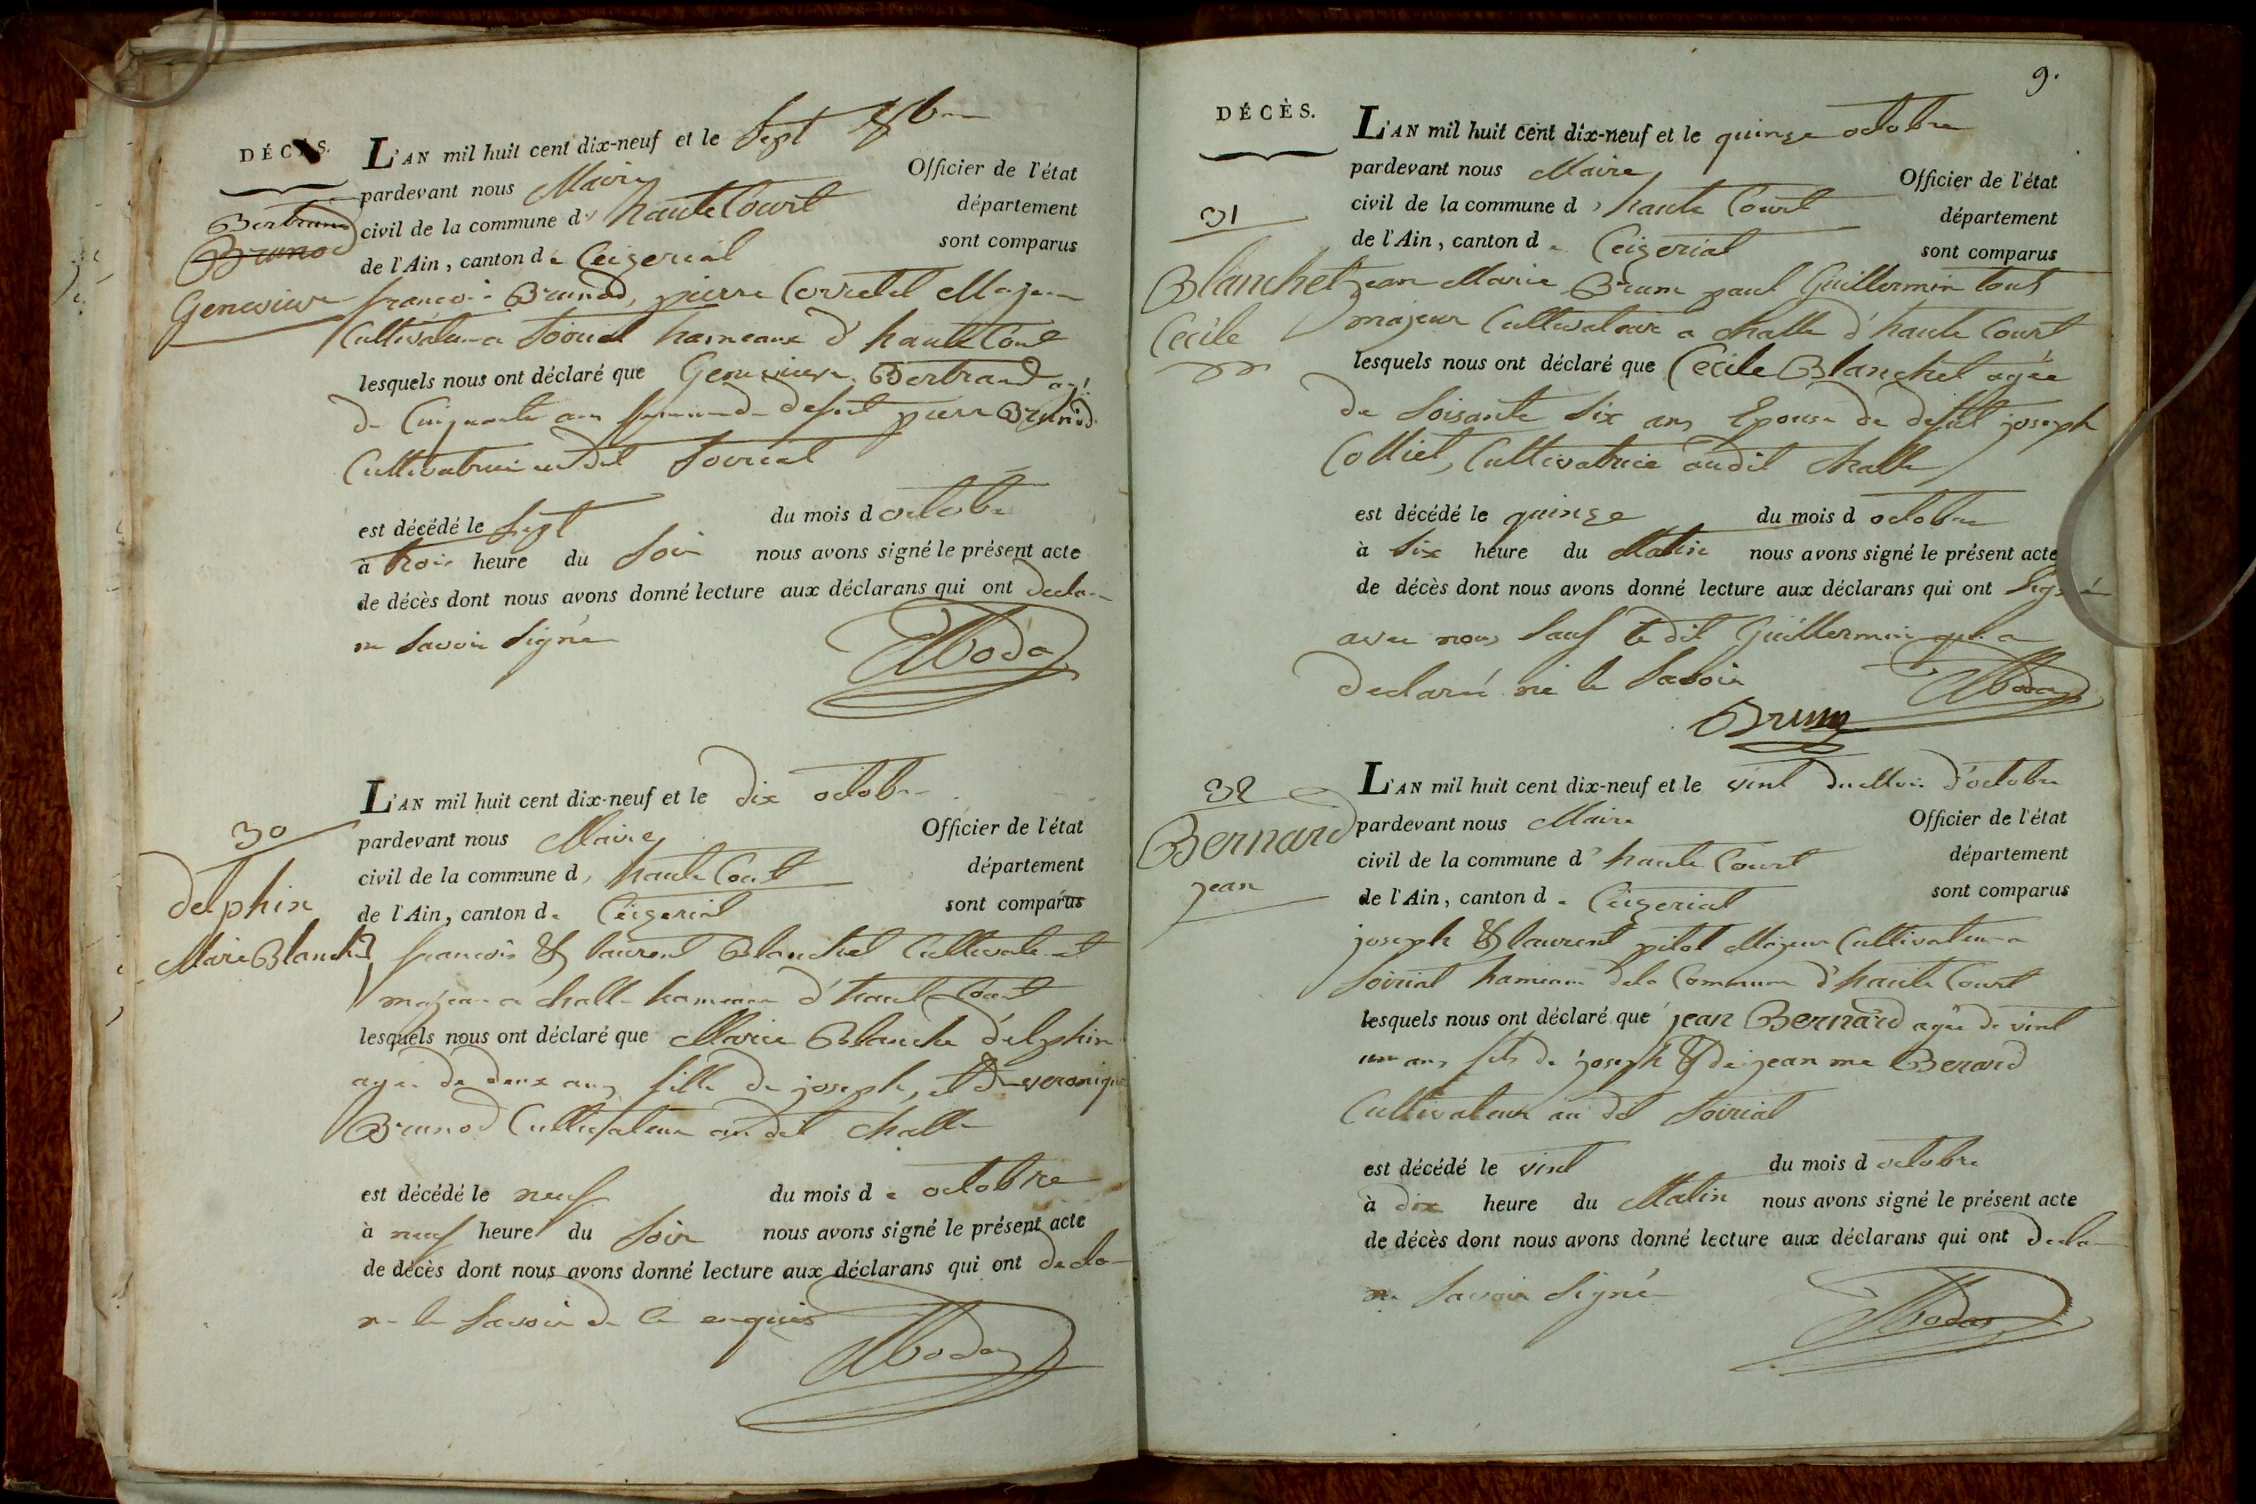 DÉCÈS.
L'AN mil huit cent dix-neuf et le Sept 8bre
pardevant nous Maire Officier de l'état
civil de la commune d' haute Court département
de l'Ain, canton de Ceizeriat sont comparus
Bertrand
Brunod
Genevieve
françois Brunod, pierre Corretel Majeur
Cultivateur a Soiriat hameaux d'haute Court
lesquels nous ont déclaré que Genevieve Bertrand agé
de Cinquante ans femme de defunt pierre Brunod
Cultivatrice audit Soiriat
est décédé le Sept du mois d octobre
à trois heure du Soir nous avons signé le présent acte
de décès dont nous avons donné lecture aux déclarans qui ont declaré
ne Savoir Signé
L'AN mil huit cent dix-neuf et le dix octobre
30
pardevant nous Maire Officier de l'état
civil de la commune d' haute Court département
de l'Ain, canton de Ceizeriat sont comparus
delphin
Marie Blanche
francois & laurent Blanchet Cultivateur et
majeur a challe hameau d'haute Court
lesquels nous ont déclaré que Marie Blanche delphin
agée de deux ans fille de joseph, et de veronique
Brunod Cultivateur audit challe
est décédé le neuf du mois de octobre
à neuf heure du Soir nous avons signé le présent acte
de décès dont nous avons donné lecture aux déclarans qui ont declaré
ne le Savoir de ce enquis
9.
DÉCÈS.
L'AN mil huit cent dix-neuf et le quinze octobre
pardevant nous Maire Officier de l'état
31
civil de la commune d' haute Court département
de l'Ain, canton de Ceizeriat sont comparus
Blanchet
Cécile
jean Marie Brun paul Guillermin tous
majeur Cultivateur a challe d'haute Court
lesquels nous ont déclaré que Cécile Blanchet agée
de Soisante Six ans Epouse de defut joseph
Colliet, Cultivatrice audit challe
est décédé le quinze du mois d octobre
à Six heure du Matin nous avons signé le présent acte
de décès dont nous avons donné lecture aux déclarans qui ont Signé
avec nous Sauf le dit Guillermin qui a
declaré ne le Savoir
Brun
32
L'AN mil huit cent dix-neuf et le vint du Mois d'octobre
pardevant nous Maire Officier de l'état
Bernard
jean
civil de la commune d' haute Court département
de l'Ain, canton de Ceizeriat sont comparus
joseph & laurent pitot Majeur Cultivateur a
Soiriat hameau dela Commune d'haute Court
lesquels nous ont déclaré que jean Bernard agée de vint
un ans fils de joseph & de jean me Berard
Cultivateur au dit Soiriat
est décédé le vint du mois d octobre
à dix heure du Matin nous avons signé le présent acte
de décès dont nous avons donné lecture aux déclarans qui ont declaré
ne Savoir Signé